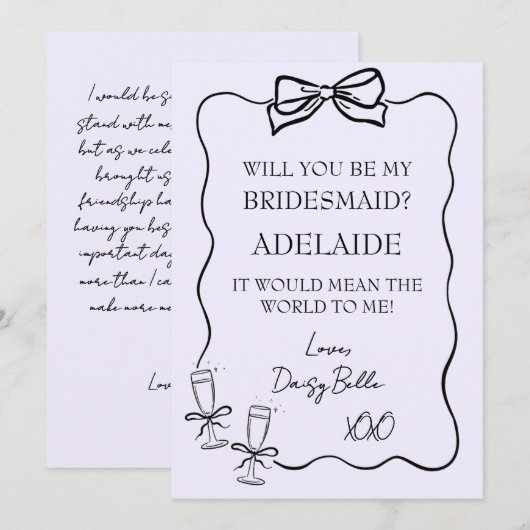 I would be
stand with me
but as we
brought us
friendship
having you
important
more than I
make more
WILL YOU BE MY
BRIDESMAID?
ADELAIDE
IT WOULD MEAN THE
WORLD TO ME!
Love,
DaisyBelle
XOXO